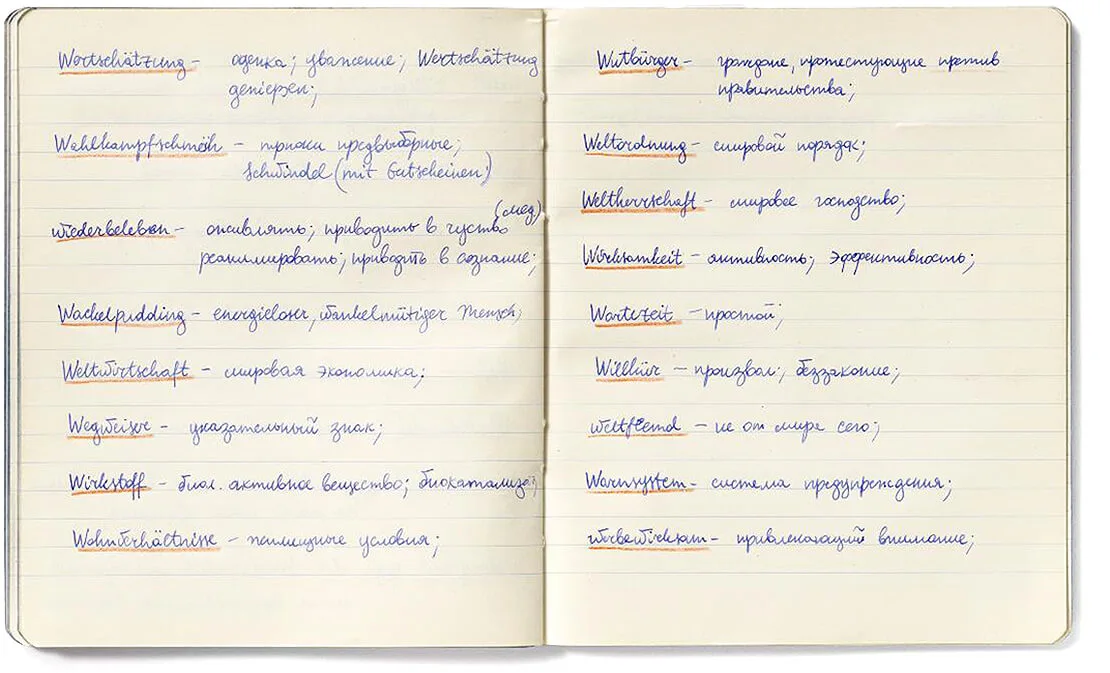 Wertschätzung – оценка; уважение; Wertschätzung
genießen;
Wahlkampfschmäh – трюки предвыборные;
Schwindel (mit Gutscheinen)
(мед)
wiederbeleben – оживлять; приводить в чуство
реанимировать; приводить в сознание;
Wackelpudding – energieloser, wankelmütiger Mensch;
Weltwirtschaft – мировая экономика;
Wegweiser – указательный знак;
Wirkstoff – биол. активное вещество;
Wohnverhältnisse – жилищные условия;
Wutbürger – граждане, протестующие против
правительства;
Weltordnung – мировой порядок;
Weltherrschaft – мировое господство;
Wirksamkeit – активность; эффективность;
Wartezeit – простой;
Willkür – произвол; беззаконие;
weltfremd – не от мира сего;
Warnsystem – система предупреждения;
werbewirksam – привлекающий внимание;